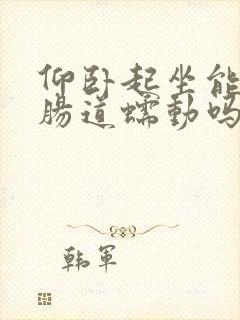 仰卧起坐能
肠道蠕动吗
韩军